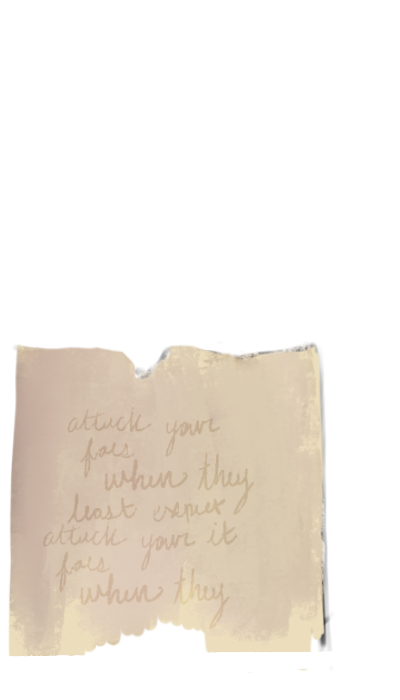 attack your
foes
when they
least expect
attack your it
foes
when they